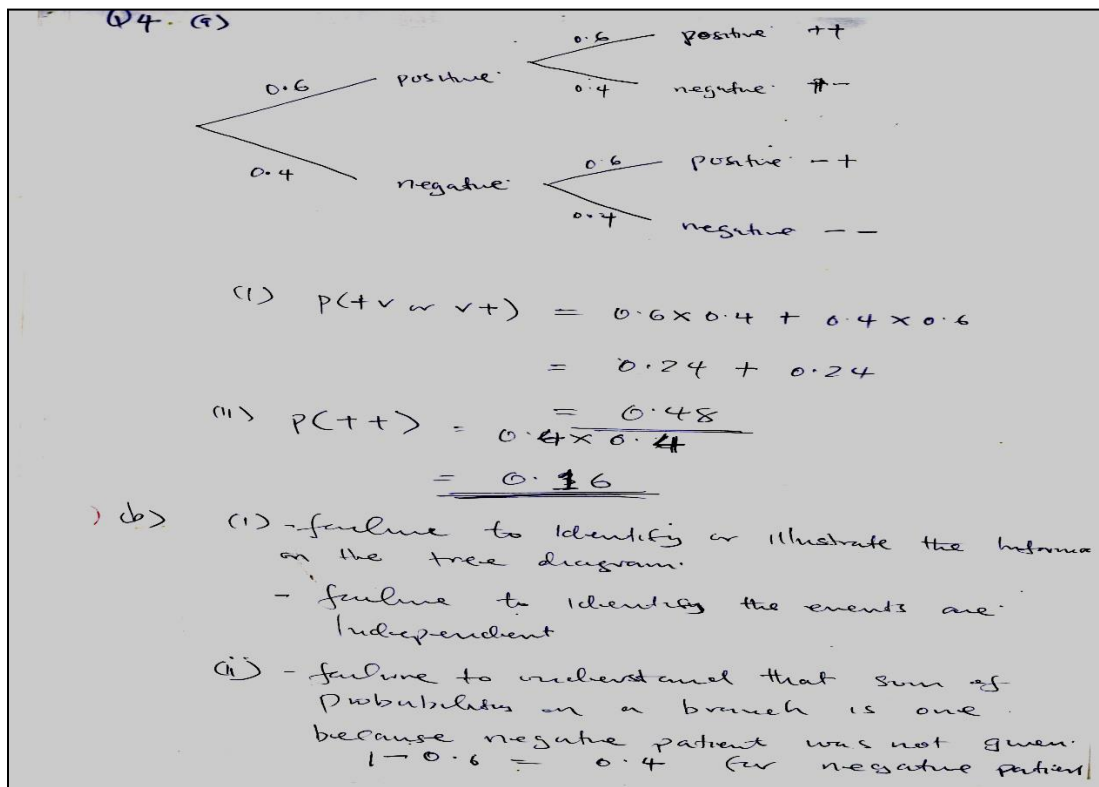 Q4. (a)
0.6 positive ++
0.6 positive
0.4 negative +-
0.4 negative
0.6 positive - +
0.4 negative - -
(i) P(+v or v+) = 0.6 x 0.4 + 0.4 x 0.6
= 0.24 + 0.24
= 0.48
(ii) P(++) = 0.4 x 0.4
= 0.16
(b) (i) - failure to identify or illustrate the informa
on the tree diagram.
- failure to identify the events are
independent
(ii) - failure to understand that sum of
probabilities on a branch is one
because negative patient was not given.
1 - 0.6 = 0.4 for negative patient